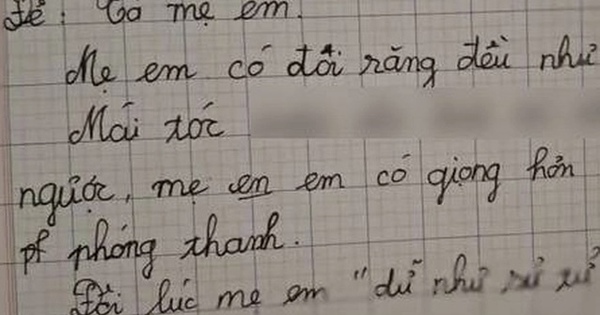 Đề: Tả mẹ em.
Mẹ em có đôi răng đều như
Mái tóc
người, mẹ em em có giọng hơn
phóng thanh.
Đôi lúc mẹ em "dữ như